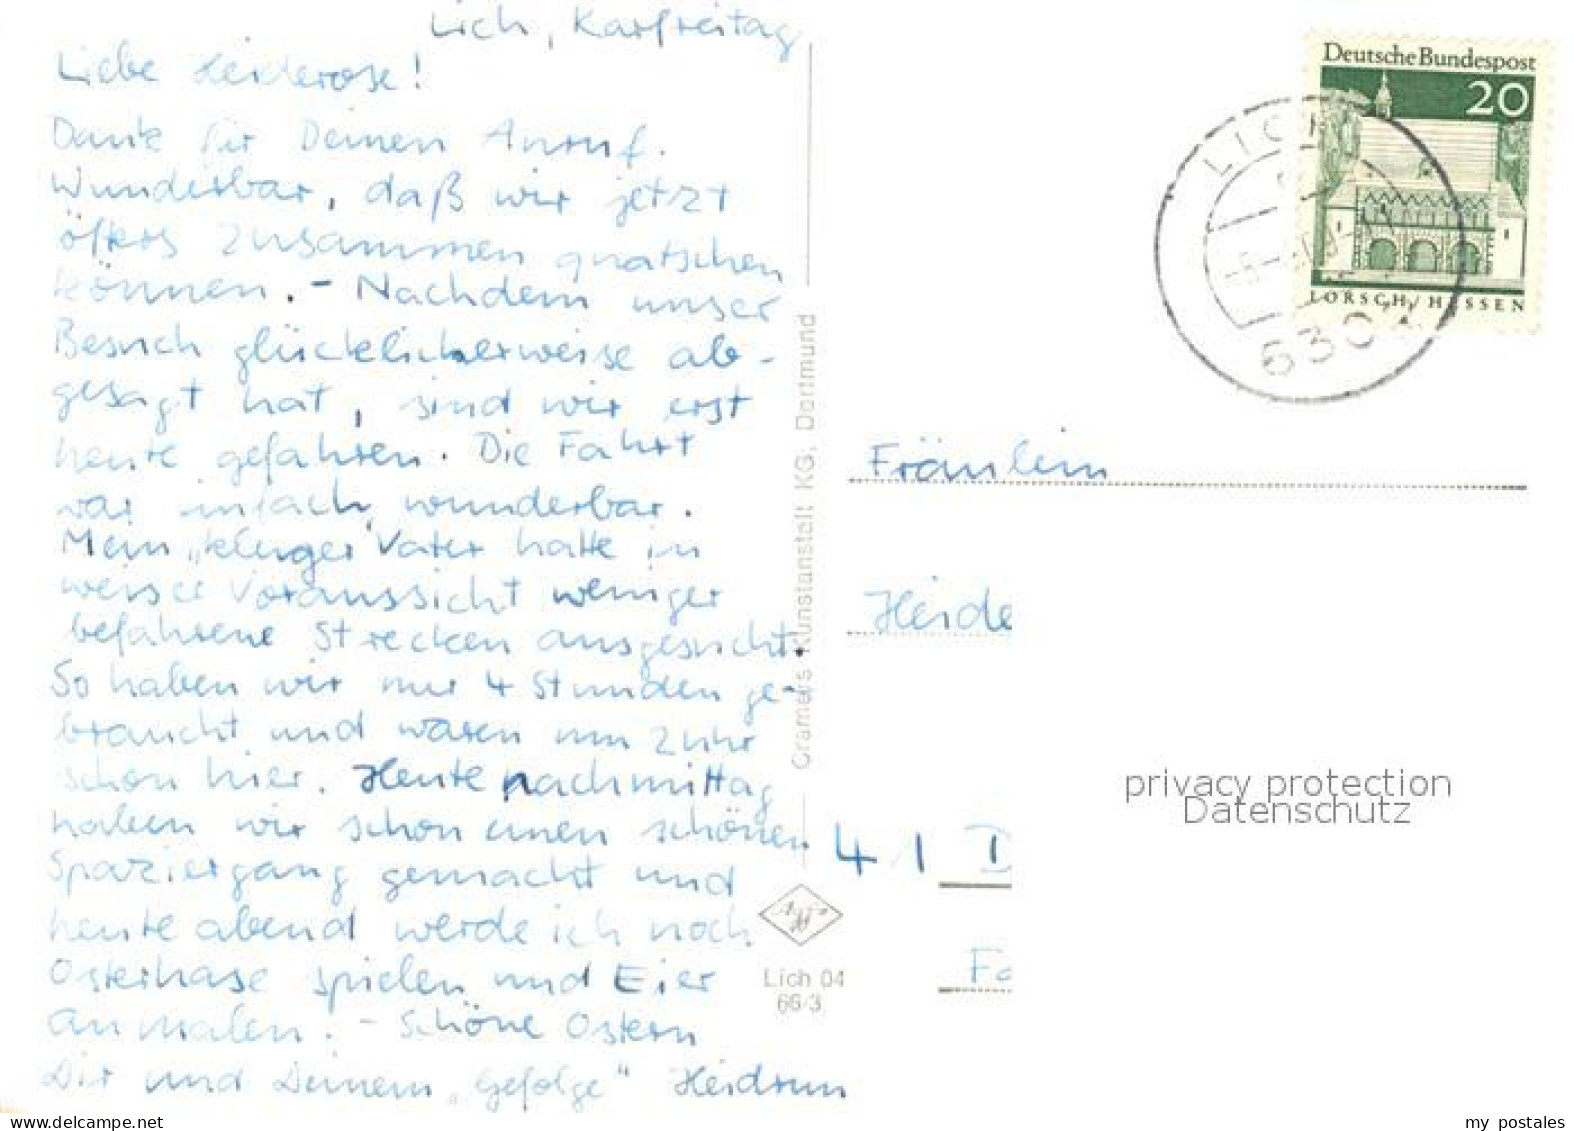 Lich, Karfreitag
Liebe Heiderose!
Dank für Deinen Anruf.
Wunderbar, daß wir jetzt
öfters zusammen quatschen
können. - Nachdem unser
Besuch glücklicherweise ab-
gesagt hat, sind wir erst
heute gefahren. Die Fahrt
war einfach wunderbar.
Mein „kluger" Vater hatte in
weiser Voraussicht weniger
befahrene Strecken ausgesucht.
So haben wir nur 4 Stunden ge-
braucht und waren um 2 Uhr
schon hier. Heute nachmittag
haben wir schon einen schönen
Spaziergang gemacht und
heute abend werde ich noch
Osterhase spielen und Eier
anmalen. - Schöne Ostern
Dir und Deinem „Gefolge" Heidrun
Cramers Kunstanstalt KG, Dortmund
Lich 04
66/3
Deutsche Bundespost
20
LORSCH/HESSEN
LICH
630
Fräulein
Heide
41 D
Fa
privacy protection
Datenschutz
www.delcampe.net
my postales